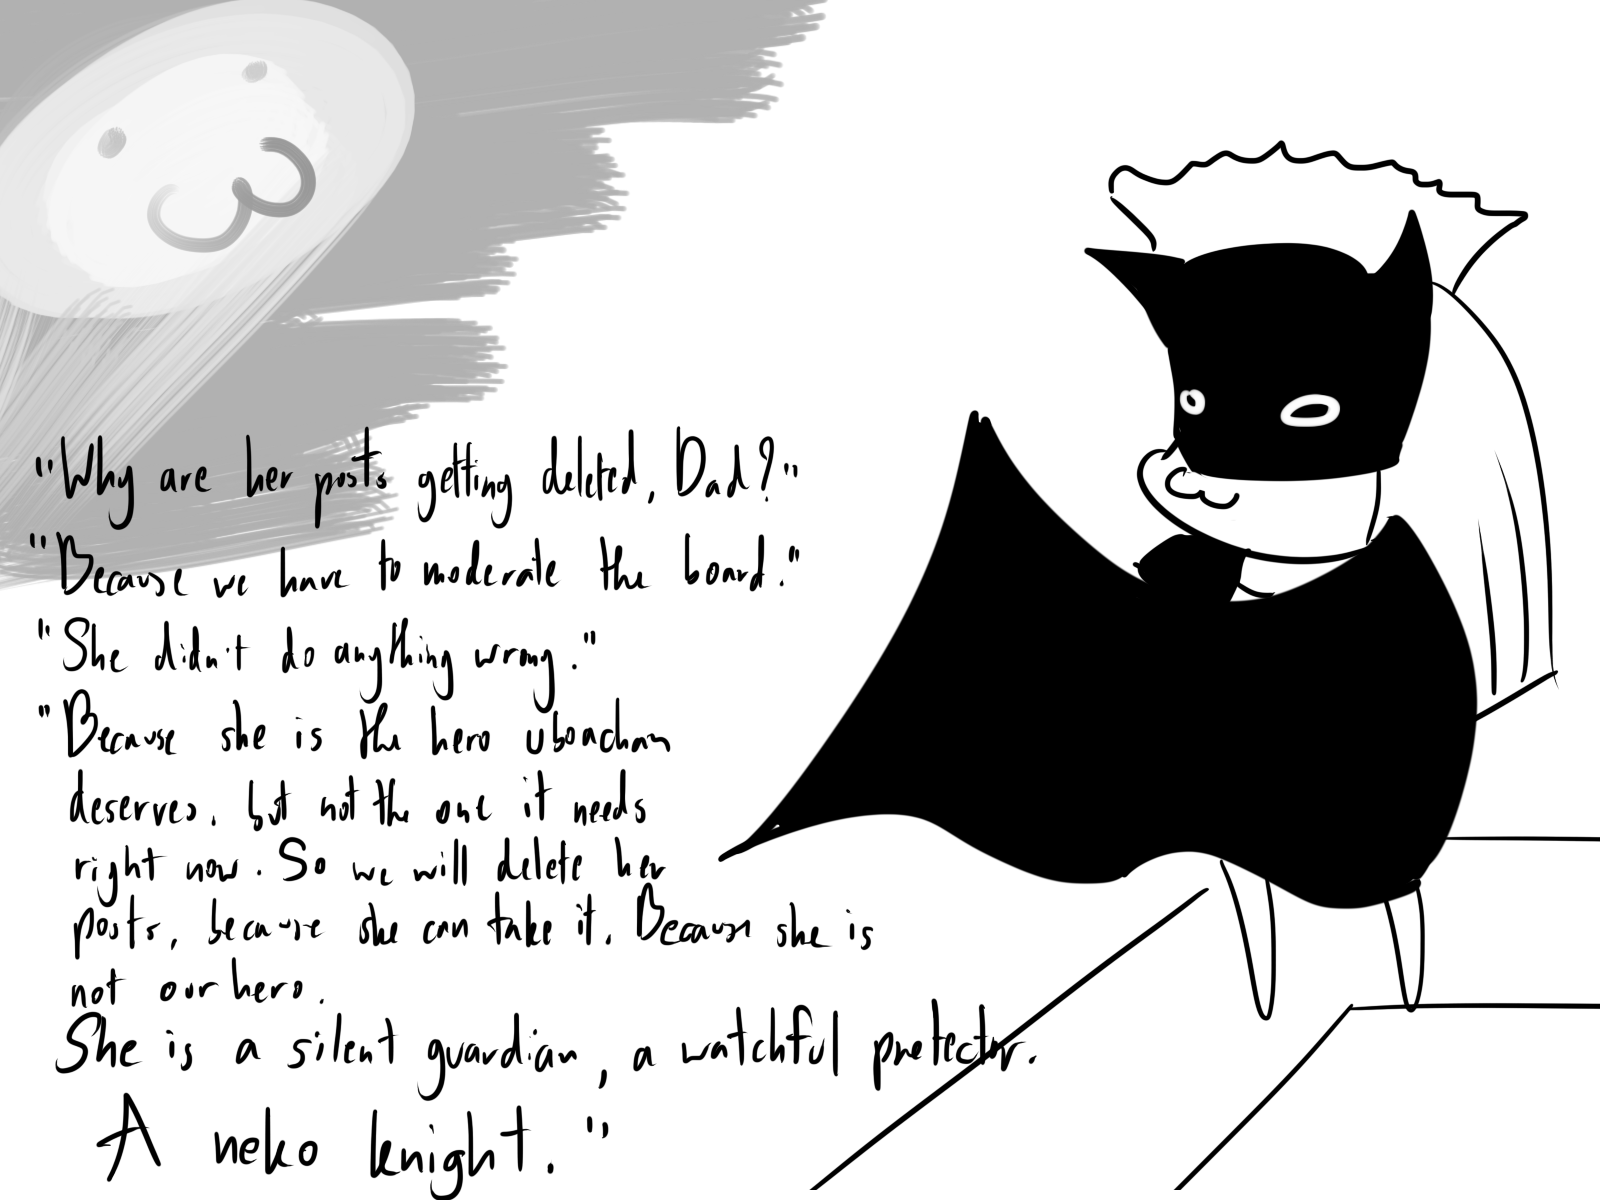 "Why are her posts getting deleted, Dad?"
"Because we have to moderate the board."
"She didn't do anything wrong."
"Because she is the hero uboachan
deserves, but not the one it needs
right now. So we will delete her
posts, because she can take it. Because she is
not our hero.
She is a silent guardian, a watchful protector.
A neko knight."